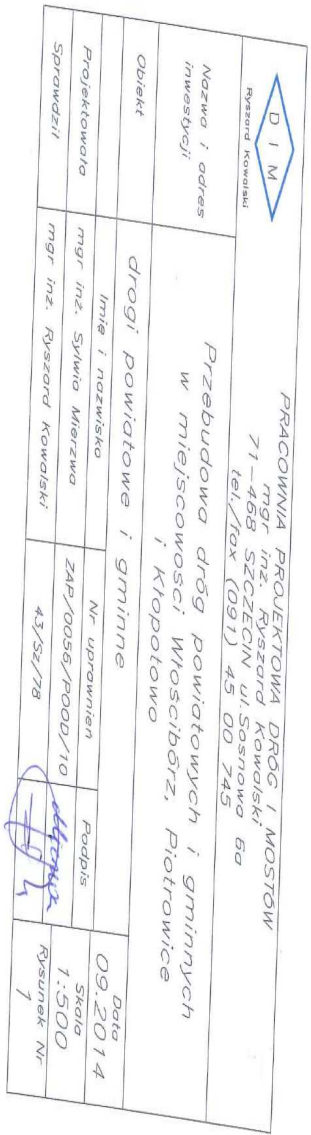 D I M
Ryszard Kowalski
PRACOWNIA PROJEKTOWA DRÓG I MOSTÓW
mgr inż. Ryszard Kowalski
71-468 SZCZECIN ul.Sosnowa 6a
tel./fax (091) 45 00 745
Nazwa i adres
inwestycji
Przebudowa dróg powiatowych i gminnych
w miejscowości Włościbórz, Piotrowice
i Kłopotowo
Obiekt
drogi powiatowe i gminne
Imię i nazwisko
Nr uprawnien
Podpis
Data
09.2014
Projektowała
mgr inż. Sylwia Mierzwa
ZAP/0056/POOD/10
Skala
1:500
Sprawdził
mgr inż. Ryszard Kowalski
43/Sz/78
Rysunek Nr
1